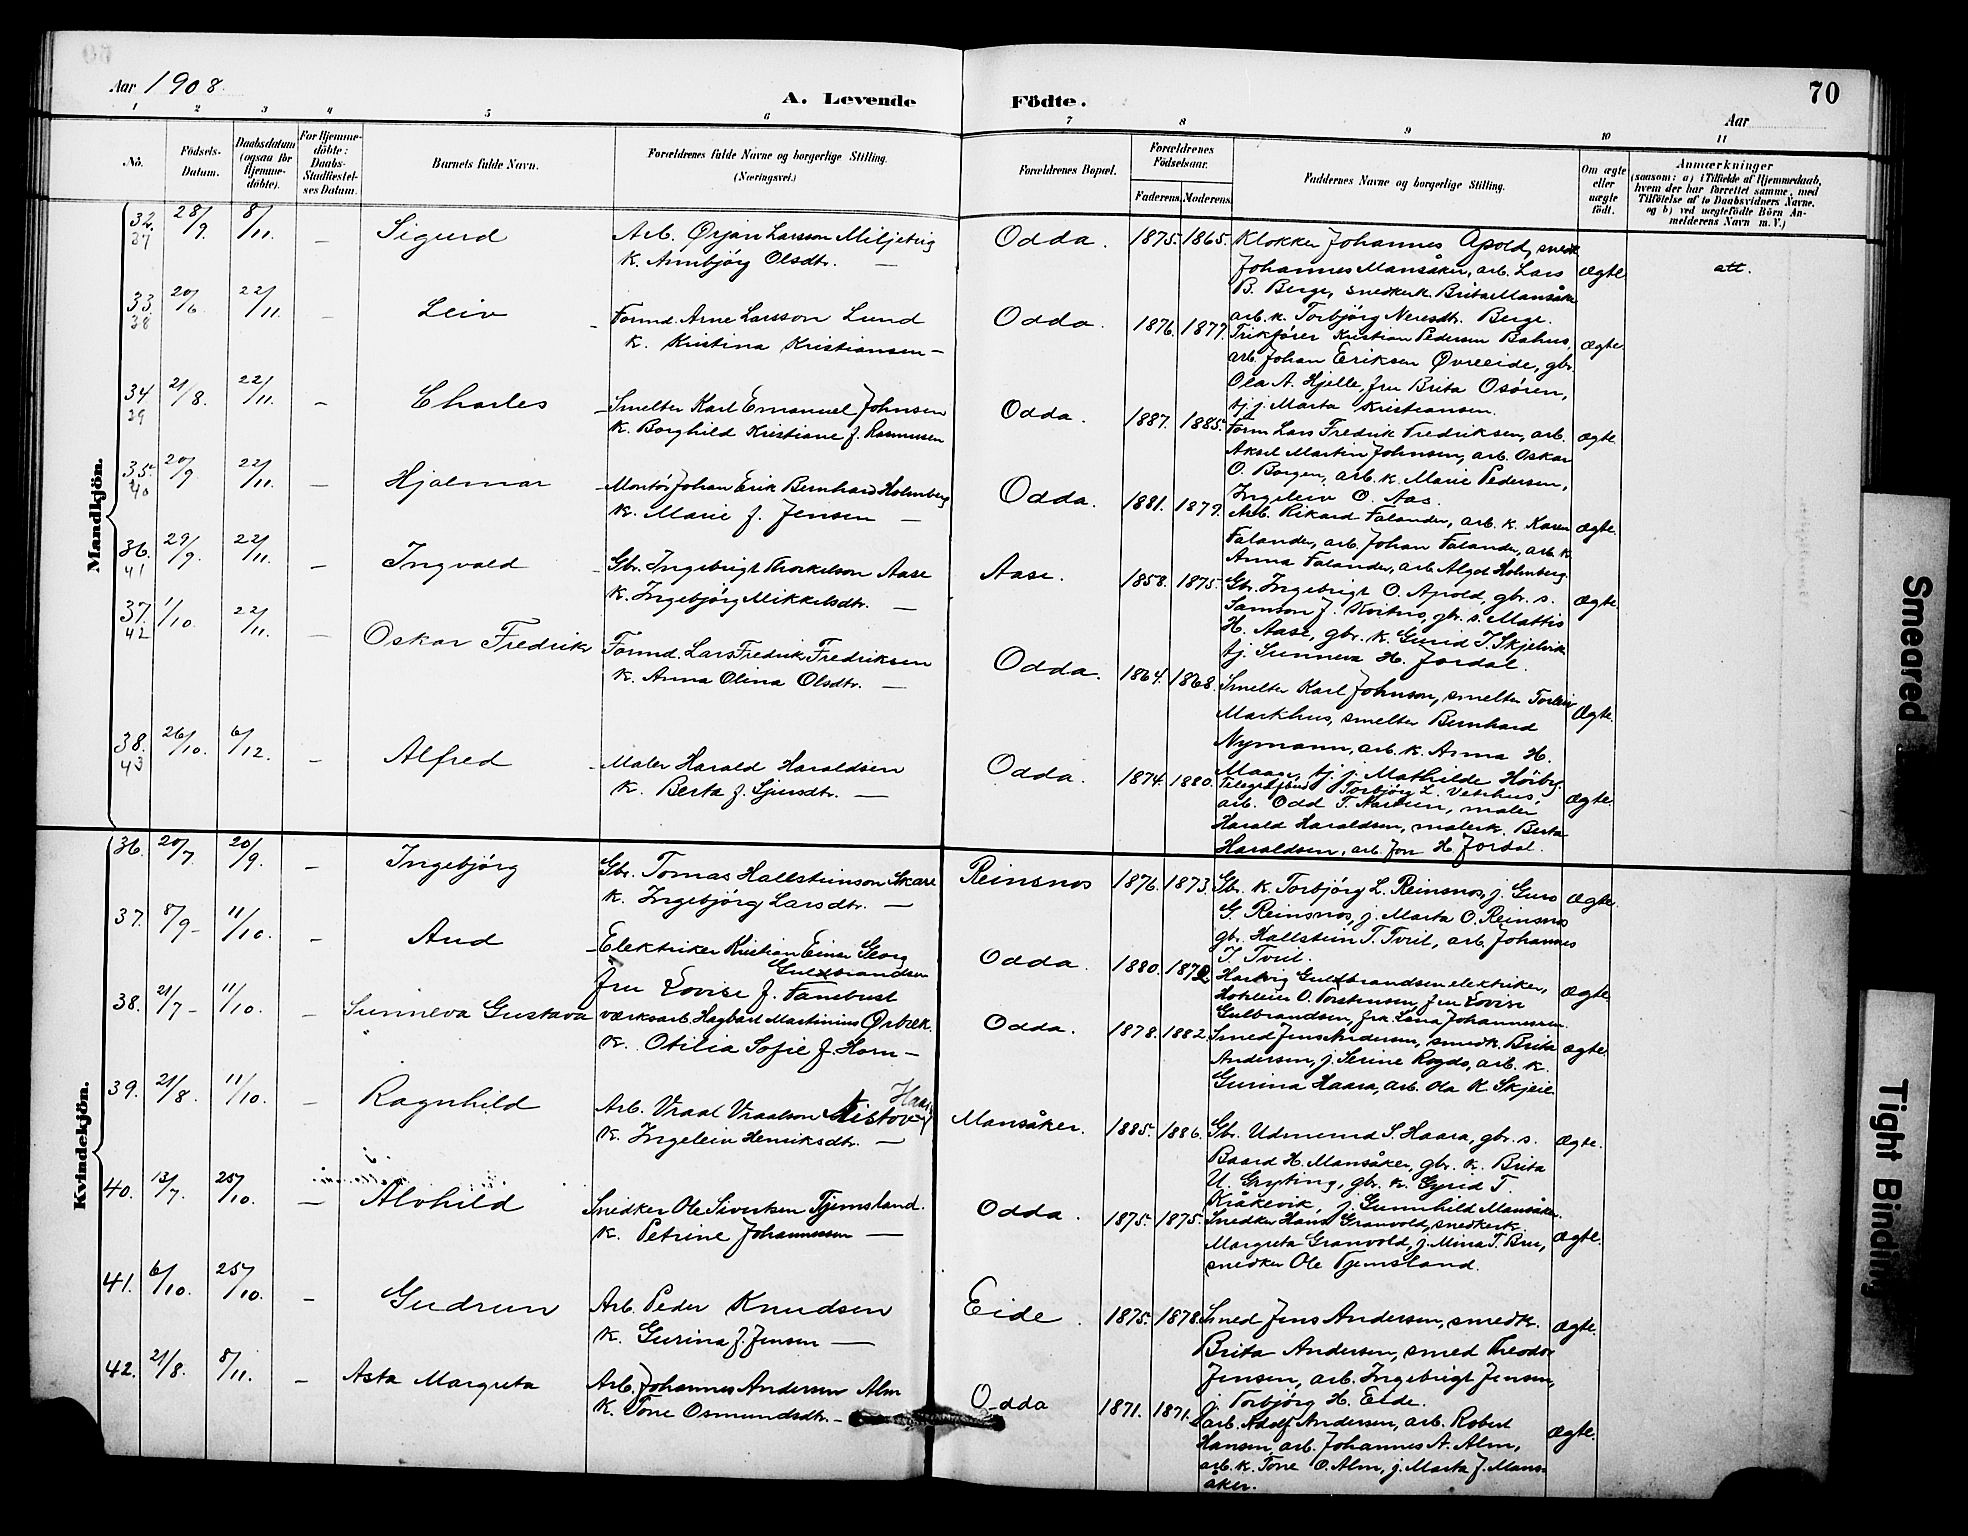 70
Aar 1908.
A. Levende Födte.
Aar
1 2 3 4 5 6 7 8 9 10 11
No.
Födsels-Datum.
Daabsdatum (ogsaa for Hjemme-döbte).
For Hjemme-döbte: Daabs-Stadfæstel-ses Datum.
Barnets fulde Navn.
Forældrenes fulde Navne og borgerlige Stilling. (Næringsvei.)
Forældrenes Bopæl.
Forældrenes Födselsaar.
Faderens. Moderens.
Faddernes Navne og borgerlige Stilling.
Om ægte eller uægte födt.
Anmærkninger
(saasom: a) i Tilfælde af Hjemmedaab, hvem der har forrettet samme, med Tilföielse af to Daabsvidners Navne. og b) ved uægtefödte Börn An-melderens Navn m. V.)
Mandkjön.
32. 37 28/9. 8/11. — Sigurd
Arb. Ørjan Larsson Miljeteig
K. Annbjörg Olsdtr. —
Odda. 1875. 1865.
Klokker Johannes Apold, snedk
Johannes Mansåker, arb. Lars
B. Berge, snedkerk. Brita Mansåker
arb. k. Torbjörg Neresdtr. Berge.
Ægte att.
33. 38 20/6 22/11. — Leiv
Formd. Arne Larsson Lund
K. Kristina Kristiansen —
Odda. 1876. 1877.
Trikförer Kristian Pedersen Bahus,
arb. Johan Eriksen Øvreeide, gbr.
Ola A. Hjelle, fru Brita Osören,
tj. j. Marta Kristiansen.
Ægte.
34 39 21/8. 22/11. — Charles
Smelter Karl Emanuel Johnsen
K. Borghild Kristiane f. Rasmussen
Odda. 1887. 1885.
Form Lars Fredrik Fredriksen, arb.
Aksel Martin Johnsen, arb. Oskar
O. Borgen, arb. k. Marie Pedersen,
Ingeleiv O. Aas.
Ægte.
35. 40 20/9. 22/11. — Hjalmar
Montör Johan Erik Bernhard Holmberg
K. Marie f. Jensen —
Odda. 1881. 1879.
Arb. Rikard Falander, arb. k. Karen
Falander, arb. Johan Falander, arb. k.
Anna Falander, arb. Algot Holmberg.
Ægte.
36. 41 29/9. 22/11. — Ingvald
Gbr. Ingebrigt Thorkelson Aase
K. Ingebjörg Mikkelsdtr. —
Aase. 1858. 1875.
Gbr. Ingebrigt O. Apold, gbr. s.
Samson J. Kvitno, gbr. s. Mattis
H. Aase, gbr. k. Gurid T. Skjelvik
tj. Sunneva H. Jordal.
Ægte.
37. 42 1/10. 22/11. — Oskar Fredrik
Formd. Lars Fredrik Fredriksen
K. Anna Olina Olsdtr. —
Odda. 1864. 1868.
Smelter Karl Johnson, smelter Torleiv
Markhus, smelter Bernhard
Nymann, arb. k. Anna H.
Maage, tj. j. Mathilde Hörbg.
Ægte.
38. 43 26/10. 6/12. — Alfred
Maler Harald Haraldsen
K. Berta f. Sjursdtr. —
Odda. 1874. 1880.
Torbjörg L. Vethus,
arb. Odd T. Nartun, maler
Harald Haraldsen, malerk. Berta
Haraldsen, arb. Jon H. Jordal.
Ægte.
Kvindekjön.
36. 20/7 20/9. — Ingebjörg
Gbr. Tomas Hallsteinson Skare
K. Ingebjörg Larsdtr. —
Reinsnos 1876. 1873.
Gbr. k. Torbjörg L. Reinsnos, j. Guro
G. Reinsnos, j. Marta O. Reinsnos
gbr. Hallstein T. Tveit, arb. Johannes
T. Tveit.
Ægte.
37. 8/9- 11/10. — Aud
Elektriker Kristian Einar Georg
Gulbrandsen
fru Lovise f. Fanebust
Odda. 1880. 1872
Hartvig Guldbrandsen elektriker,
O. Torstensen, fru Lovise
Gulbrandsen, frk. Lena Johannessen.
Ægte
38. 21/7- 11/10. — Sunneva Gustava
værksarb. Hagbart Martinius Ørbæk.
K. Otilia Sofie f. Horn —
Odda. 1878. 1882.
Smed Jens Andersen, smedk. Brita
Andersen, j. Serine Rogde, arb. k.
Gurina Haara, arb. Ola K. Skjeie.
Ægte.
39. 21/8. 11/10. — Ragnhild
Arb. Vraal Vraalson Nistov Haara
K. Ingeleiv Henriksdtr. —
Mansåker. 1885. 1886.
Gbr. Udmund S. Haara, gbr. s.
Baard H. Mansåker, gbr. k. Brita
U. Gryting, gbr. k. Gyrid T.
Kråkevik, j. Gunnhild Mansåker.
Ægte.
40. 13/7. 25/10. — Alvhild
Snedker Ole Sivertsen Tjemsland.
K. Petrine Johannessen —
Odda. 1875. 1875.
Snedker Hans Granvold, snedkerk.
Margreta Granvold, j. Mina T. Bru,
snedker Ole Tjemsland.
Ægte.
41. 6/10. 25/10. — Gudrun
Arb. Peder Knudsen
K. Gurina f. Jensen —
Eide. 1875. 1878.
Smed Jens Andersen, smedk.
Brita Andersen, smed Theodor
Jensen, arb. Ingebrigt Jensen,
j. Torbjörg H. Eide.
Ægte.
42. 21/8. 8/11. — Asta Margreta
Arb. Johannes Andersen Alm
K. Tone Osmundsdtr. —
Odda 1871. 1871.
arb. Adolf Andersen, arb. Robert
Hansen, arb. Johannes A. Alm,
arb. k. Tone O. Alm, j. Marta J. Mans-
åker.
Ægte.
Smeared
Tight Binding